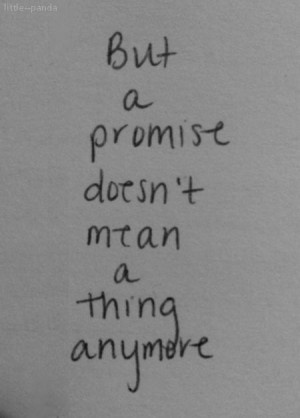 little-panda
But
a
promise
doesn't
mean
a
thing
anymore